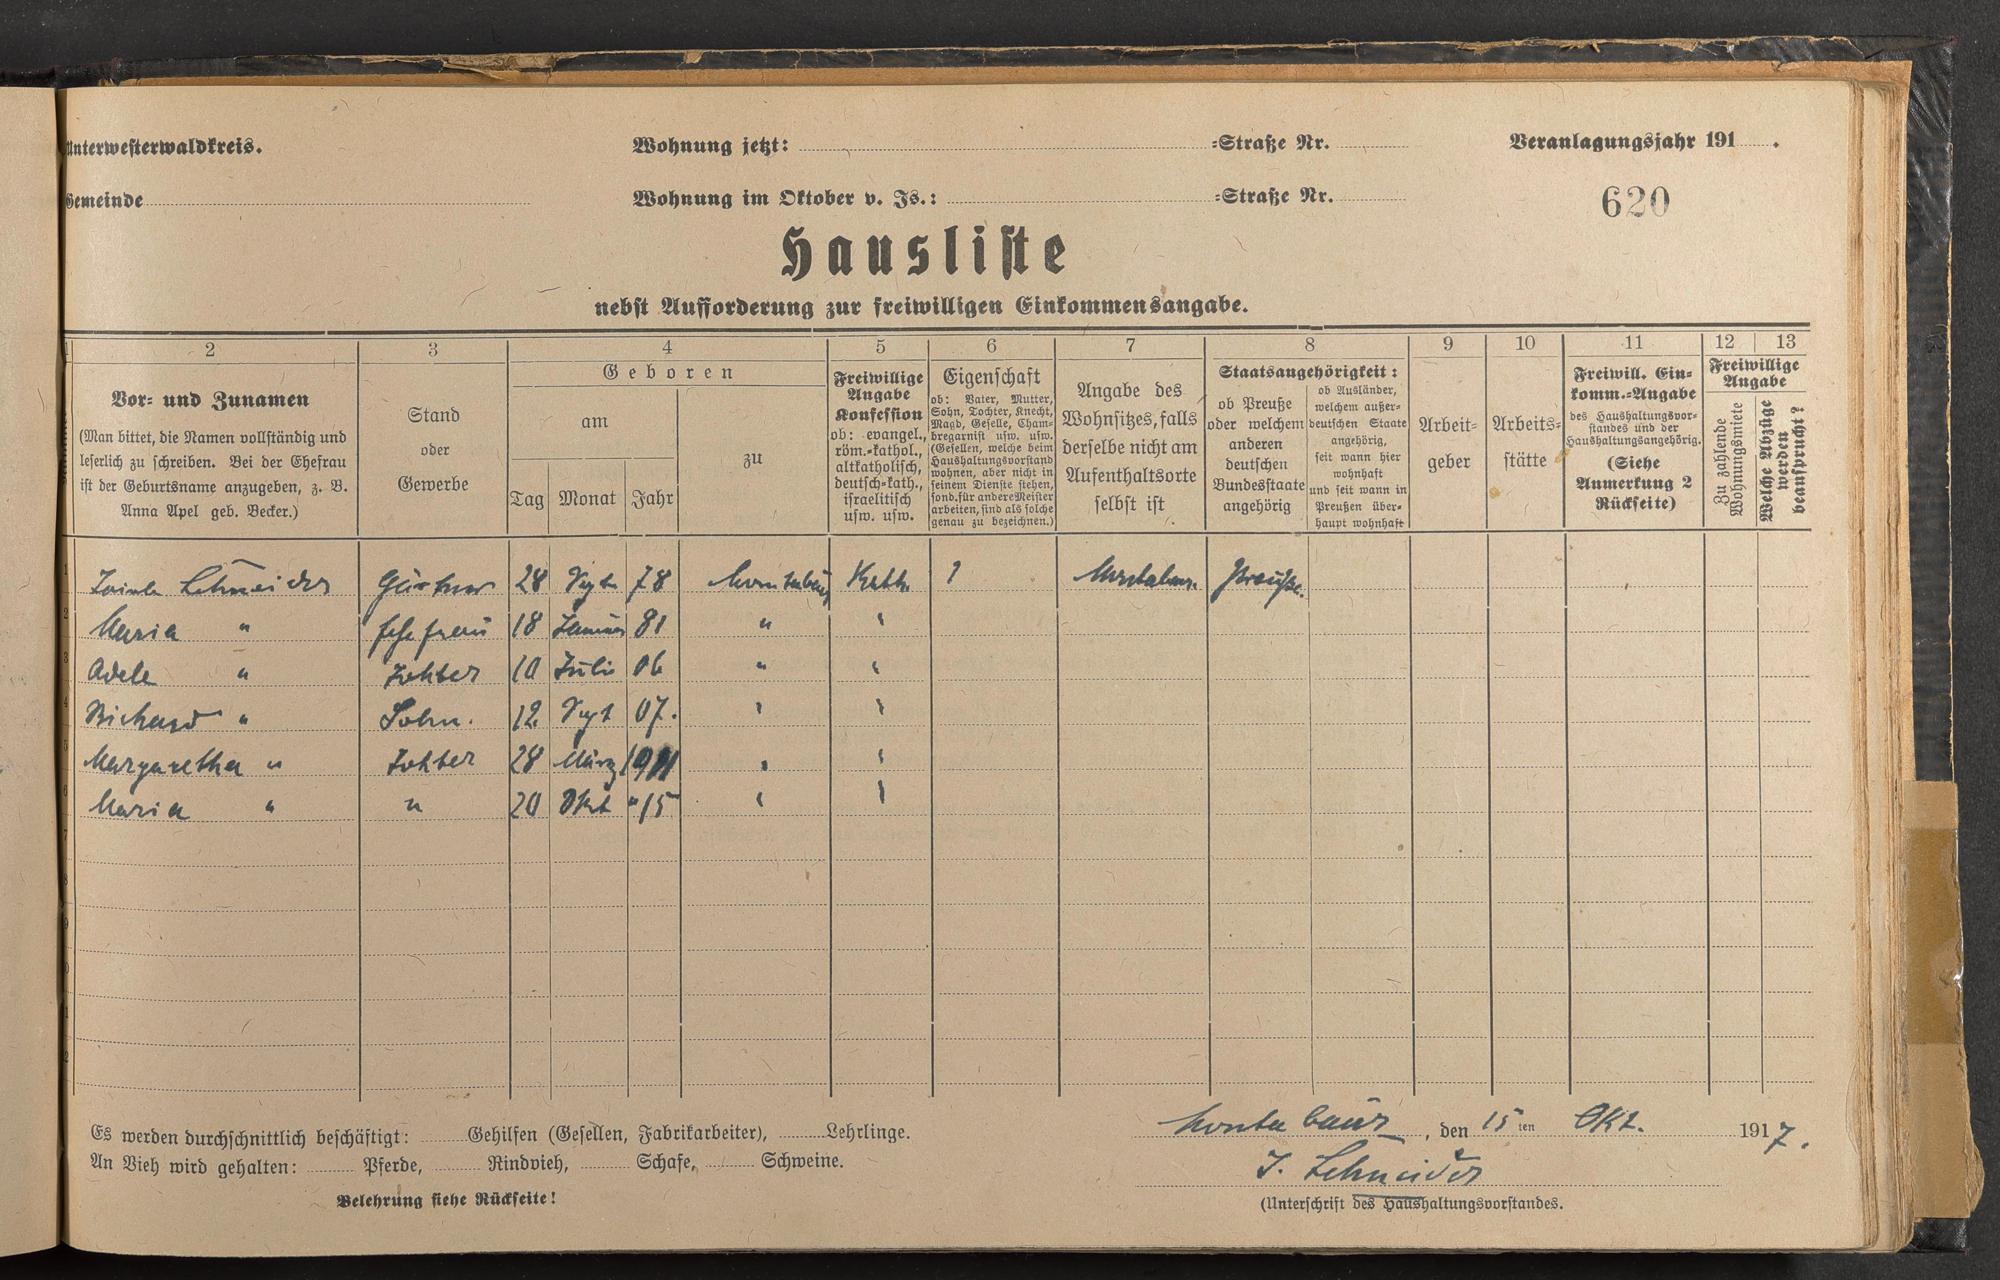 Unterwesterwaldkreis. Wohnung jetzt: -Straße Nr. Veranlagungsjahr 191 .
Gemeinde Wohnung im Oktober v. Js.: -Straße Nr.
620
Hausliste
nebst Aufforderung zur freiwilligen Einkommensangabe.
2 3 4 5 6 7 8 9 10 11 12 13
Vor- und Zunamen
(Man bittet, die Namen vollständig und
leserlich zu schreiben. Bei der Ehefrau
ist der Geburtsname anzugeben, z. B.
Anna Apel geb. Becker.)
Stand
oder
Gewerbe
Geboren
am
Tag Monat Jahr
zu
Freiwillige
Angabe
Konfession
ob: evangel.,
röm.-kathol.,
altkatholisch,
deutsch-kath.,
israelitisch
usw. usw.
Eigenschaft
ob: Vater, Mutter,
Sohn, Tochter, Knecht,
Magd, Geselle, Cham-
bregarnist usw. usw.
(Gesellen, welche beim
Haushaltungsvorstand
wohnen, aber nicht in
seinem Dienste stehen,
sond. für andere Meister
arbeiten, sind als solche
genau zu bezeichnen.)
Angabe des
Wohnsitzes, falls
derselbe nicht am
Aufenthaltsorte
selbst ist
Staatsangehörigkeit:
ob Preuße
oder welchem
anderen
deutschen
Bundesstaate
angehörig
ob Ausländer,
welchem außer-
deutschen Staate
angehörig,
seit wann hier
wohnhaft
und seit wann in
Preußen über-
haupt wohnhaft
Arbeit-
geber
Arbeits-
stätte
Freiwill. Ein-
komm.-Angabe
des Haushaltungsvor-
standes und der
Haushaltungsangehörig.
(Siehe
Anmerkung 2
Rückseite)
Freiwillige
Angabe
Zu zahlende
Wohnungsmiete
Welche Abzüge
werden
beansprucht?
1 Schneider Gärtner 28 78 Montabaur Kath. Montabaur Preuße.
2 Maria " Ehefrau 18 Januar 81 " "
3 Adele " Tochter 10 Juli 06 " "
4 Richard " Sohn. 12. Sept 07. " "
5 Margaretha " Tochter 28 März 1911 " "
6 Maria " " 20 Okt " 15 " "
7
8
9
0
1
2
Es werden durchschnittlich beschäftigt: Gehilfen (Gesellen, Fabrikarbeiter), Lehrlinge.
An Vieh wird gehalten: Pferde, Rindvieh, Schafe, Schweine.
Belehrung siehe Rückseite!
Montabaur, den 15 ten Okt. 1917.
J. Schneider
(Unterschrift des Haushaltungsvorstandes.